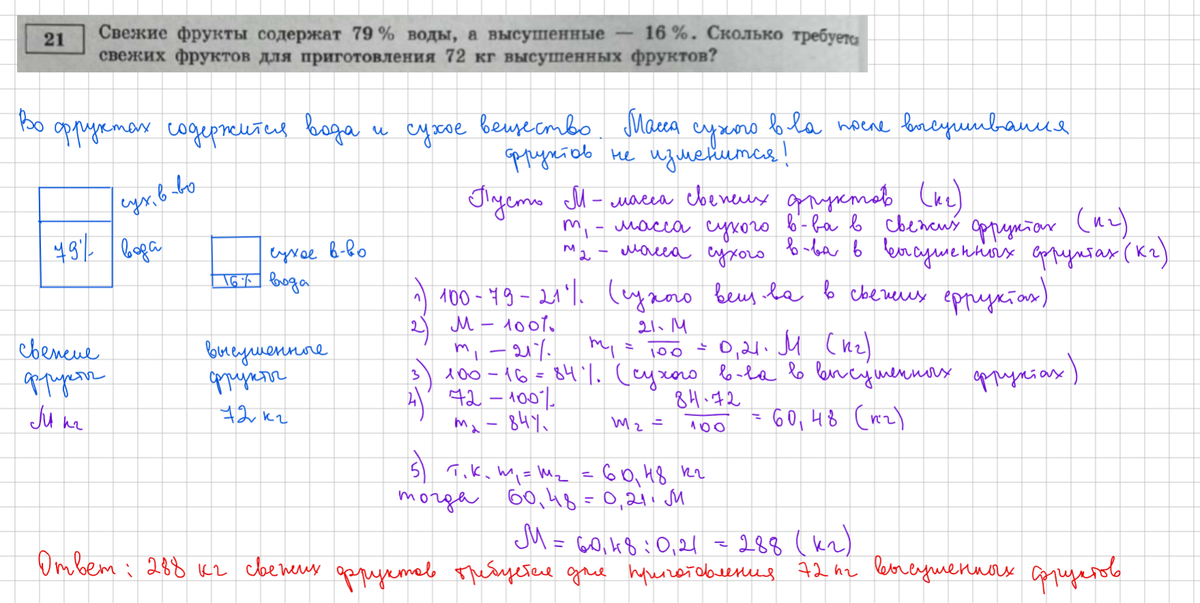 21 Свежие фрукты содержат 79 % воды, а высушенные — 16 %. Сколько требуется
свежих фруктов для приготовления 72 кг высушенных фруктов?
Во фруктах содержится вода и сухое вещество. Масса сухого в-ва после высушивания
фруктов не изменится!
сух. в-во
79% вода
сухое в-во
16% вода
свежие
фрукты
М кг
высушенные
фрукты
72 кг
Пусть М – масса свежих фруктов (кг)
m₁ – масса сухого в-ва в свежих фруктах (кг)
m₂ – масса сухого в-ва в высушенных фруктах (кг)
1) 100 - 79 - 21%. (сухого вещ-ва в свежих фруктах)
2) М – 100%
m₁ – 21%. m₁ = 21·М/100 = 0,21·М (кг)
3) 100 - 16 = 84%. (сухого в-ва в высушенных фруктах)
4) 72 – 100%
m₂ – 84%. m₂ = 84·72/100 = 60,48 (кг)
5) т.к. m₁ = m₂ = 60,48 кг
тогда 60,48 = 0,21·М
М = 60,48 : 0,21 = 288 (кг)
Ответ: 288 кг свежих фруктов требуется для приготовления 72 кг высушенных фруктов